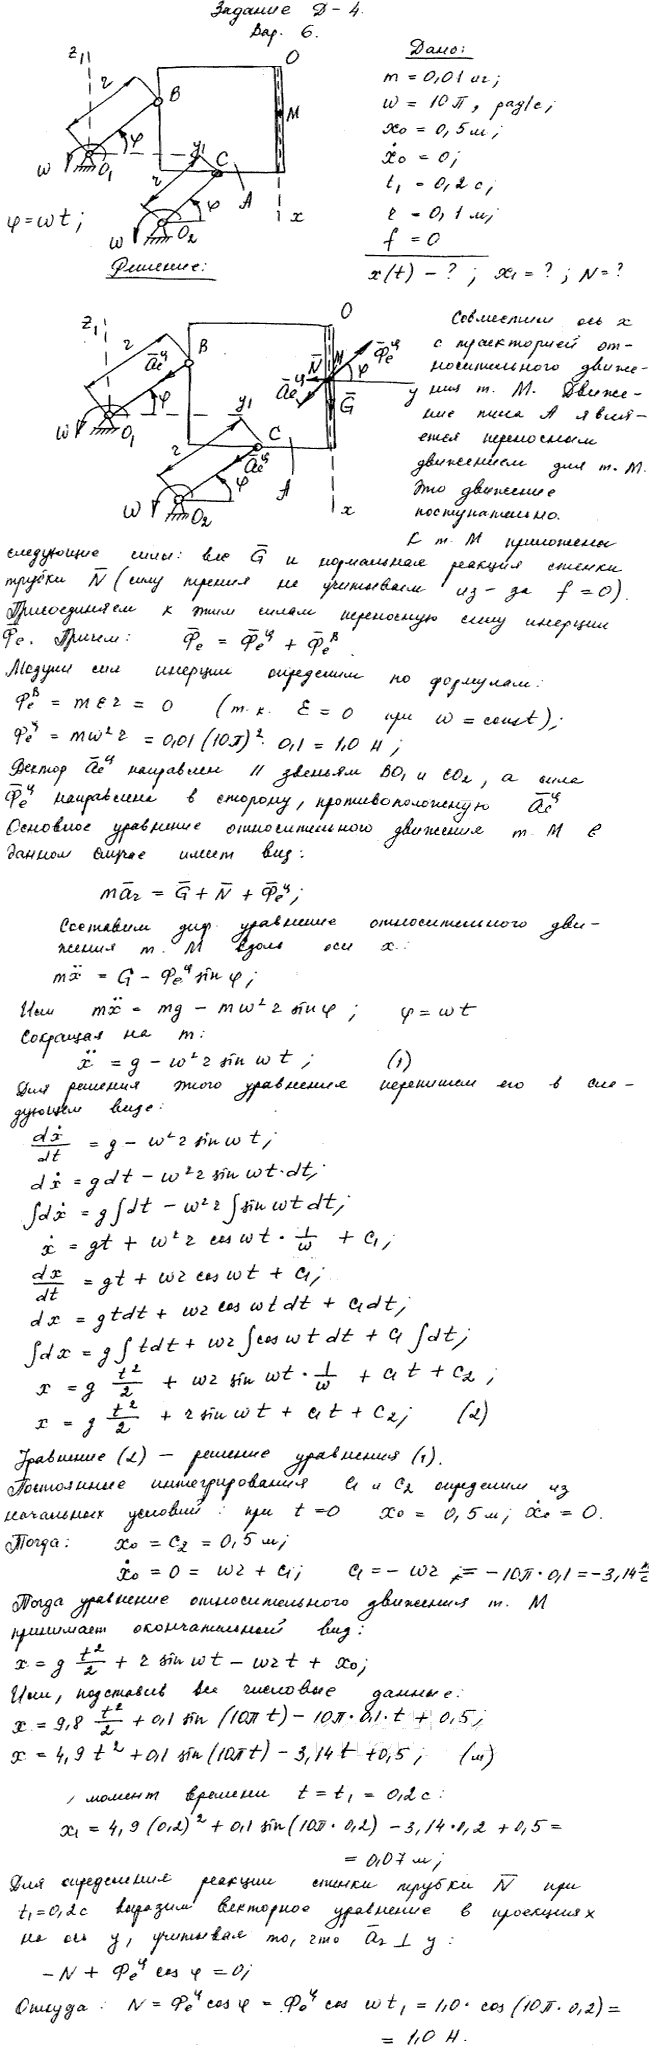 Задание Д-4.
Вар. 6.
Дано:
m = 0,01 кг;
ω = 10π, рад/с;
x₀ = 0,5 м;
ẋ₀ = 0;
t₁ = 0,2 с;
r = 0,1 м;
f = 0
x(t) - ? ; x₁ = ? ; N = ?
z₁
O
r
B
M
φ
y₁
C
ω
O₁
r
A
φ
x
φ = ωt;
ω
O₂
Решение:
z₁
O
r
B
āeц
N̄
M
Φ̄eц
φ
āeц
y
Ḡ
φ
y₁
C
ω
O₁
r
āeц
φ
A
ω
O₂
x
Совместим ось x
с траекторией от-
носительного движе-
ния т. M. Движе-
ние тела A явля-
ется переносным
движением для т. M.
Это движение
поступательно.
К т. M приложены
следующие силы: вес Ḡ и нормальная реакция стенки
трубки N̄ (силу трения не учитываем из-за f = 0).
Присоединяем к этим силам переносную силу инерции
Φ̄e. Причем: Φ̄e = Φ̄eц + Φ̄eв
Модули сил инерции определим по формулам:
Φeв = mεr = 0 (т.к. ε = 0 при ω = const);
Φeц = mω²r = 0,01 (10π)² · 0,1 = 1,0 Н;
Вектор āeц направлен // звеньям BO₁ и CO₂, а сила
Φ̄eц направлена в сторону, противоположную āeц
Основное уравнение относительного движения т. M в
данном случае имеет вид:
mār = Ḡ + N̄ + Φ̄eц;
Составим диф. уравнение относительного дви-
жения т. M вдоль оси x:
mẍ = G - Φeц sin φ;
Или mẍ = mg - mω²r sin φ ; φ = ωt
Сокращая на m:
ẍ = g - ω²r sin ωt ; (1)
Для решения этого уравнения перепишем его в сле-
дующем виде:
dẋ/dt = g - ω²r sin ωt;
dẋ = gdt - ω²r sin ωt·dt;
∫dẋ = g∫dt - ω²r ∫sin ωt dt;
ẋ = gt + ω²r cos ωt · 1/ω + C₁;
dx/dt = gt + ωr cos ωt + C₁;
dx = gtdt + ωr cos ωt dt + C₁dt;
∫dx = g∫tdt + ωr ∫cos ωt dt + C₁ ∫dt;
x = g t²/2 + ωr sin ωt · 1/ω + C₁t + C₂ ;
x = g t²/2 + r sin ωt + C₁t + C₂; (2)
Уравнение (2) - решение уравнения (1).
Постоянные интегрирования C₁ и C₂ определим из
начальных условий: при t = 0 x₀ = 0,5 м; ẋ₀ = 0.
Тогда: x₀ = C₂ = 0,5 м;
ẋ₀ = 0 = ωr + C₁; C₁ = - ωr = - 10π · 0,1 = -3,14 м/с
Тогда уравнение относительного движения т. M
принимает окончательный вид:
x = g t²/2 + r sin ωt - ωrt + x₀;
Или, подставив все числовые данные:
x = 9,8 t²/2 + 0,1 sin (10πt) - 10π·0,1·t + 0,5;
x = 4,9 t² + 0,1 sin (10πt) - 3,14t + 0,5 ; (м)
, момент времени t = t₁ = 0,2 с:
x₁ = 4,9 (0,2)² + 0,1 sin (10π · 0,2) - 3,14·0,2 + 0,5 =
= 0,07 м;
Для определения реакции стенки трубки N̄ при
t₁ = 0,2 с выразим векторное уравнение в проекциях
на ось y, учитывая то, что ār ⊥ y:
-N + Φeц cos φ = 0;
Откуда: N = Φeц cos φ = Φeц cos ωt₁ = 1,0 · cos (10π · 0,2) =
= 1,0 Н.